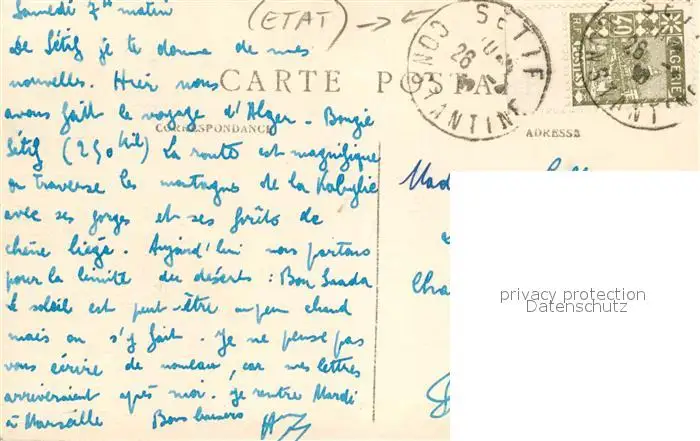 Samedi 7h matin
(ETAT)
De Sétif je te donne de mes
nouvelles. Hier nous
CARTE POSTA
avons fait le voyage d'Alger - Bougie
CORRESPONDANCE
ADRESSE
Sétif (250 kil) La route est magnifique
on traverse les montagnes de la Kabylie
avec ses gorges et ses forêts de
chêne liège. Aujourd'hui nous partons
pour la limite du déserts : Bou Saada
le soleil est peut-être un peu chaud
mais on s'y fait. Je ne pense pas
vous écrire de nouveau, car mes lettres
arriveraient après moi. Je rentre Mardi
à Marseille Bons baisers
SETIF
CONSTANTINE
26
ALGERIE
POSTES
40
Mad
Cha
privacy protection
Datenschutz